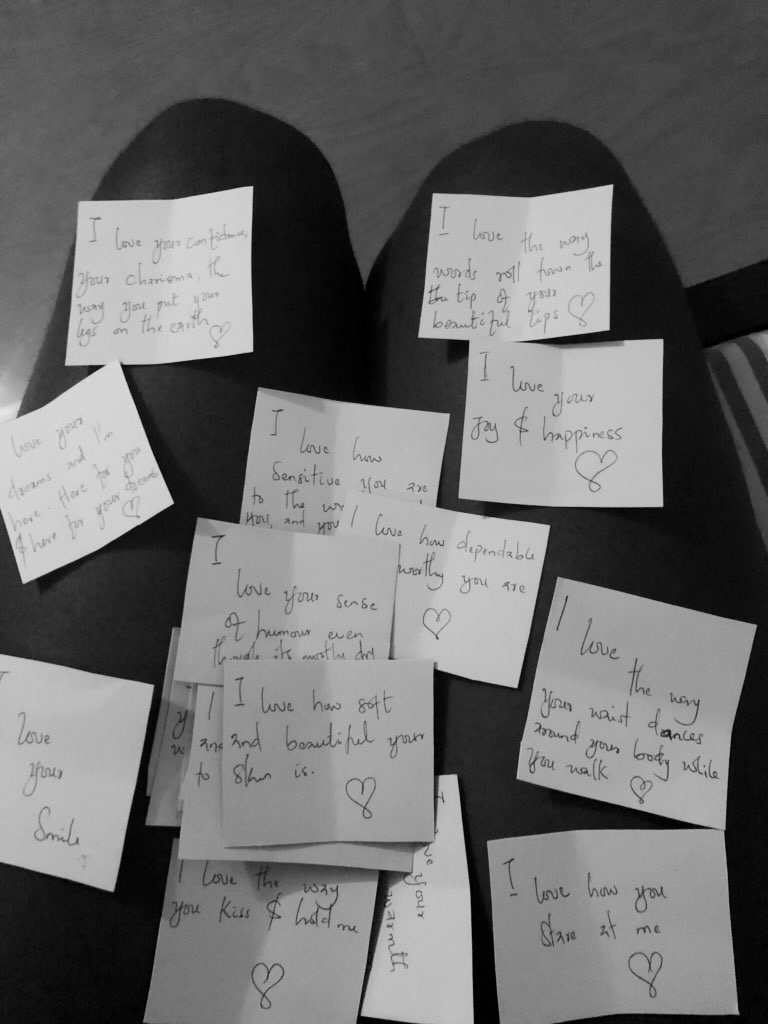 I love your confidence,
your charisma, the
way you put your
legs on the earth
I love the way
words roll down the
the tip of your
beautiful lips
I love your
Joy & happiness
love your
dreams and I'm
here. Here for you
& here for your dreams
I love how
Sensitive you are
to the
you, and you
I love how dependable
worthy you are
I
love your sense
of humour even
though its mostly dry
I love
the way
your waist dances
around your body while
you walk
I
love
your
Smile
I love how soft
and beautiful your
skin is.
I
and
to
I love the way
you kiss & hold me
your
warmth
I love how you
stare at me